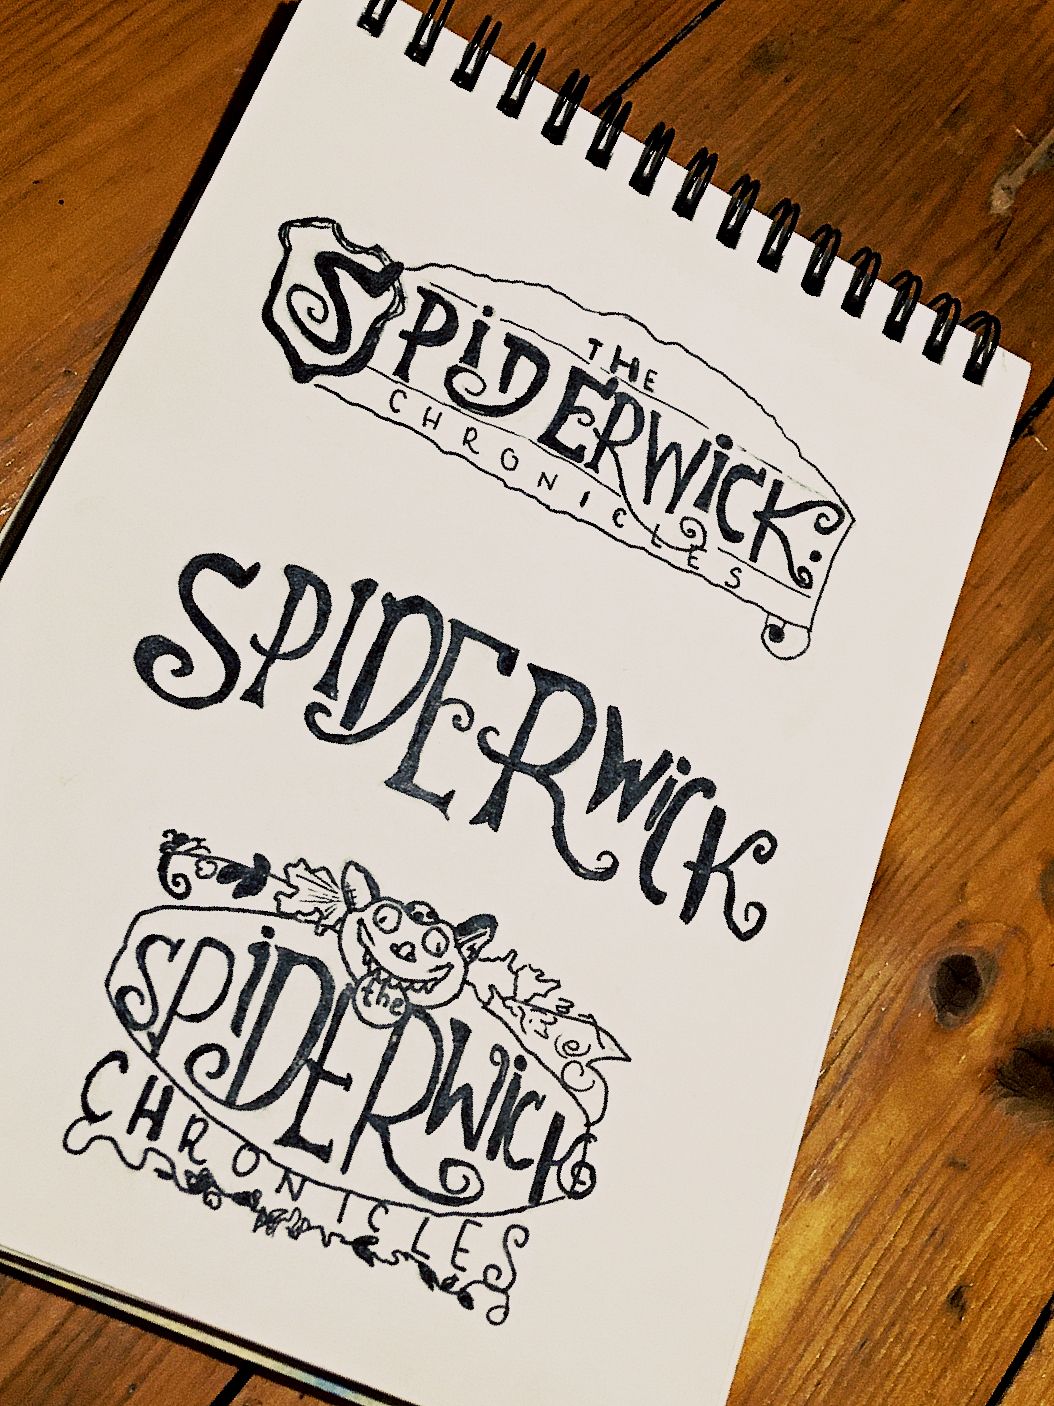 THE
SPiDERWiCK:
CHRONICLES
SPIDERWiCK
the
SPiDERWiCK
CHRONICLES